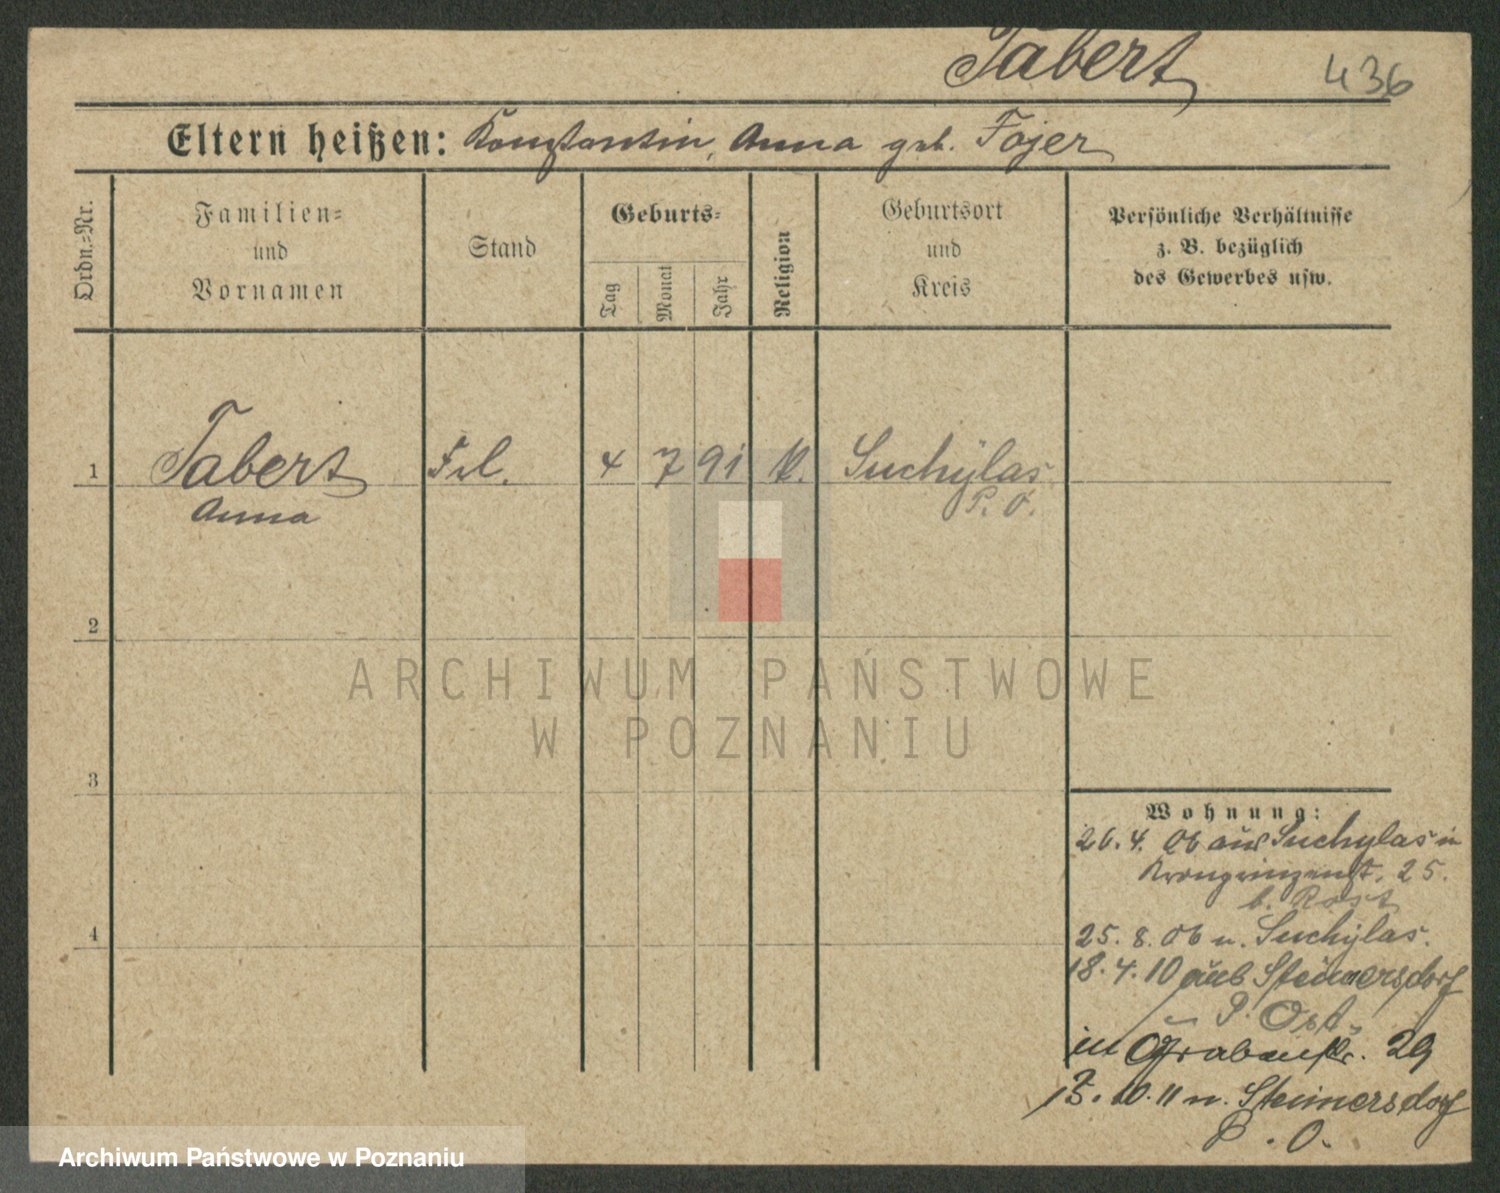 Tabert
436
Eltern heißen: Konstantin, Anna geb. Fojer
Ordn.=Nr.
Familien=
und
Vornamen
Stand
Geburts=
Tag
Monat
Jahr
Religion
Geburtsort
und
Kreis
Persönliche Verhältnisse
z. B. bezüglich
des Gewerbes usw.
1 Tabert Frl. 4 7 91 k. Suchylas
Anna P. O.
2
3
4
ARCHIWUM PAŃSTWOWE
W POZNANIU
Wohnung:
26.4.06 aus Suchylas in
Kronprinzenst. 25.
b. Rost
25.8.06 n. Suchylas.
18.4.10 aus Steinersdorf
P. Ost.
in Grabenstr. 29
13.10.11 n. Steinersdorf
P. O.
Archiwum Państwowe w Poznaniu